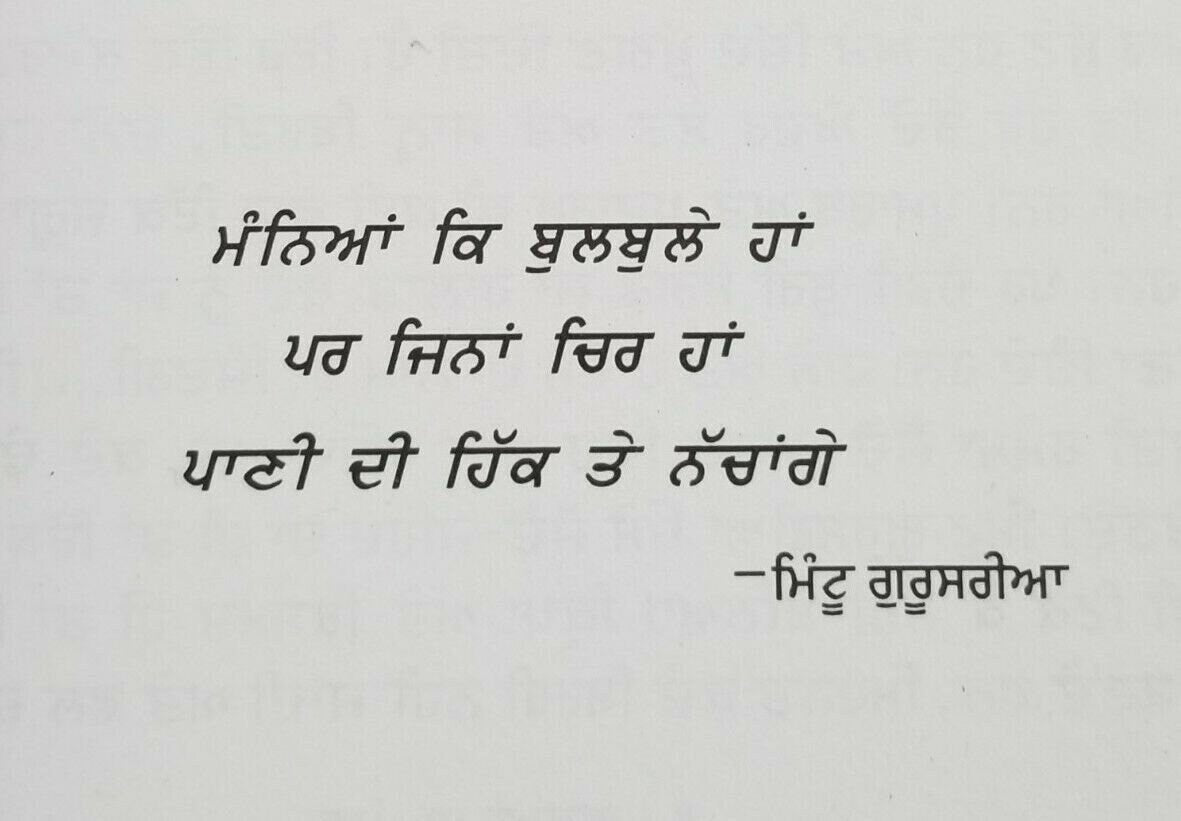 ਮੰਨਿਆਂ ਕਿ ਬੁਲਬੁਲੇ ਹਾਂ
ਪਰ ਜਿਨਾਂ ਚਿਰ ਹਾਂ
ਪਾਣੀ ਦੀ ਹਿੱਕ ਤੇ ਨੱਚਾਂਗੇ
–ਮਿੰਟੂ ਗੁਰੂਸਰੀਆ